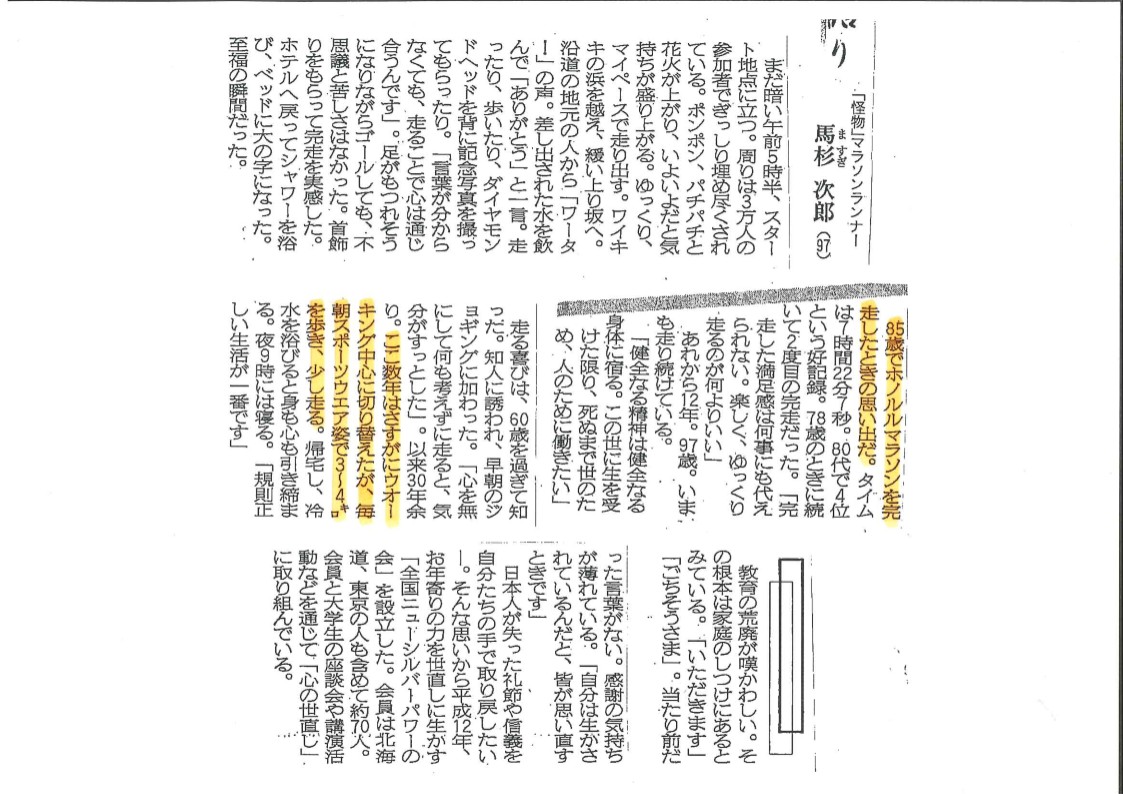 り
「怪物」マラソンランナー
馬杉 次郎(97)
ますぎ
まだ暗い午前5時半、スター
ト地点に立つ。周りは3万人の
参加者でぎっしり埋め尽くされ
ている。ポンポン、パチパチと
花火が上がり、いよいよだと気
持ちが盛り上がる。ゆっくり、
マイペースで走り出す。ワイキ
キの浜を越え、緩い上り坂へ。
沿道の地元の人から「ワータ
ー」の声。差し出された水を飲
んで「ありがとう」と一言。走
ったり、歩いたり、ダイヤモン
ドヘッドを背に記念写真を撮っ
てもらったり。「言葉が分から
なくても、走ることで心は通じ
合うんです」。足がもつれそう
になりながらゴールしても、不
思議と苦しさはなかった。首飾
りをもらって完走を実感した。
ホテルへ戻ってシャワーを浴
び、ベッドに大の字になった。
至福の瞬間だった。
85歳でホノルルマラソンを完
走したときの思い出だ。タイム
は7時間22分7秒。80代で4位
という好記録。78歳のときに続
いて2度目の完走だった。「完
走した満足感は何事にも代え
られない。楽しく、ゆっくり
走るのが何よりいい」
あれから12年。97歳。いま
も走り続けている。
「健全なる精神は健全なる
身体に宿る。この世に生を受
けた限り、死ぬまで世のた
め、人のために働きたい」
走る喜びは、60歳を過ぎて知
った。知人に誘われ、早朝のジ
ョギングに加わった。「心を無
にして何も考えずに走ると、気
分がすっとした」。以来30年余
り。ここ数年はさすがにウオー
キング中心に切り替えたが、毎
朝スポーツウエア姿で3〜4㌔
を歩き、少し走る。帰宅し、冷
水を浴びると身も心も引き締ま
る。夜9時には寝る。「規則正
しい生活が一番です」
教育の荒廃が嘆かわしい。そ
の根本は家庭のしつけにあると
みている。「いただきます」
「ごちそうさま」。当たり前だ
った言葉がない。感謝の気持ち
が薄れている。「自分は生かさ
れているんだと、皆が思い直す
ときです」
日本人が失った礼節や信義を
自分たちの手で取り戻したい
ー。そんな思いから平成12年、
お年寄りの力を世直しに生かす
「全国ニューシルバーパワーの
会」を設立した。会員は北海
道、東京の人も含めて約70人。
会員と大学生の座談会や講演活
動などを通じて「心の世直し」
に取り組んでいる。